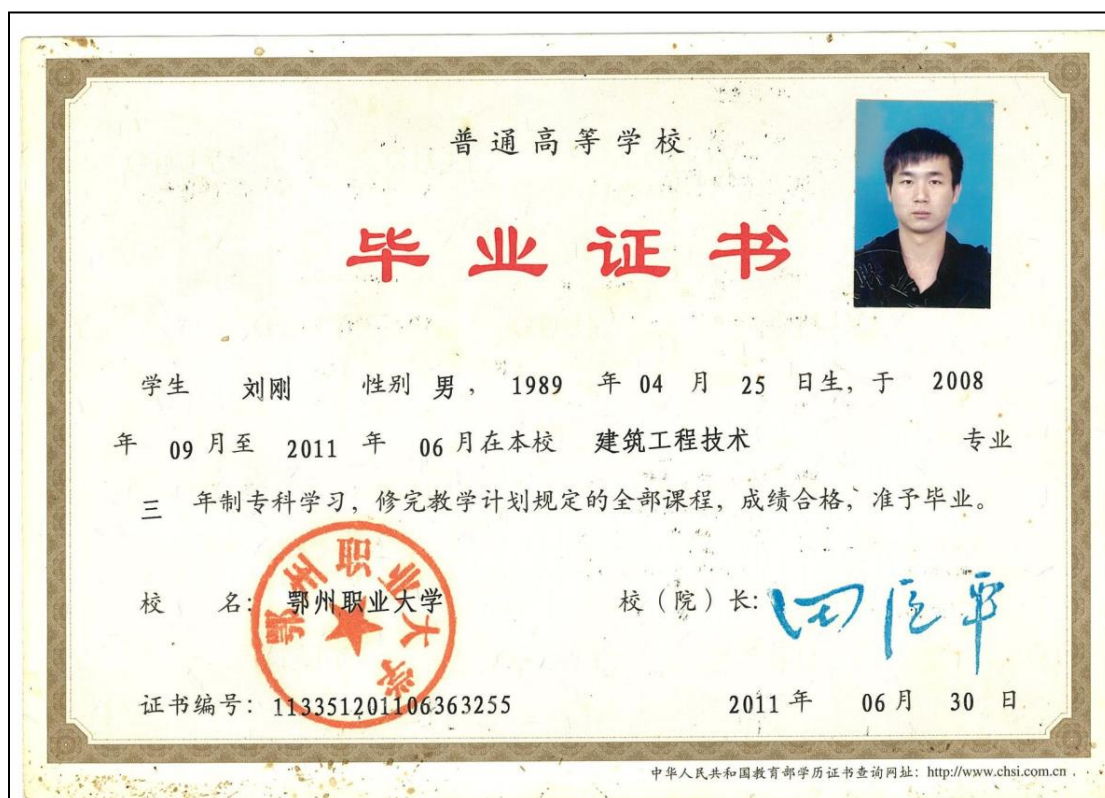 普通高等学校
毕业证书
学生 刘刚 性别 男, 1989 年 04 月 25 日生, 于 2008
年 09 月至 2011 年 06 月在本校 建筑工程技术 专业
三 年制专科学习, 修完教学计划规定的全部课程, 成绩合格, 准予毕业。
校 名: 鄂州职业大学 校(院)长:
鄂州职业大学
证书编号: 113351201106363255 2011 年 06 月 30 日
中华人民共和国教育部学历证书查询网址: http://www.chsi.com.cn